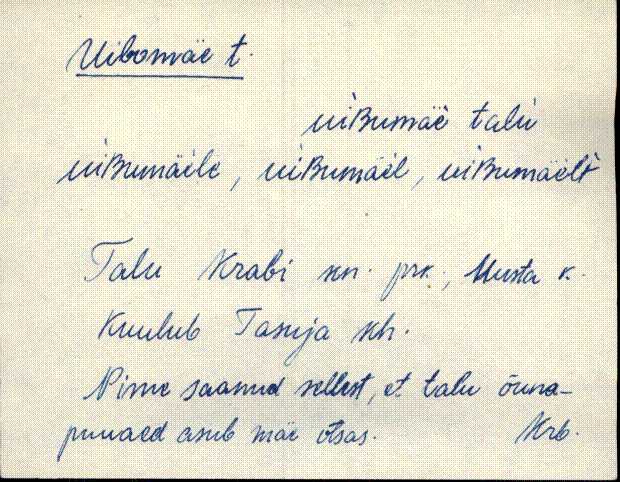 Uibomäe t.
uiʙumäe talu
uiʙumäele, uiʙumäel, uiʙumäelt
Talu Krabi kn. prk., Musta k.
Kuulub Tasuja kh.
Nime saanud sellest, et talu õuna-
puuaed asub mäe otsas. Krb.